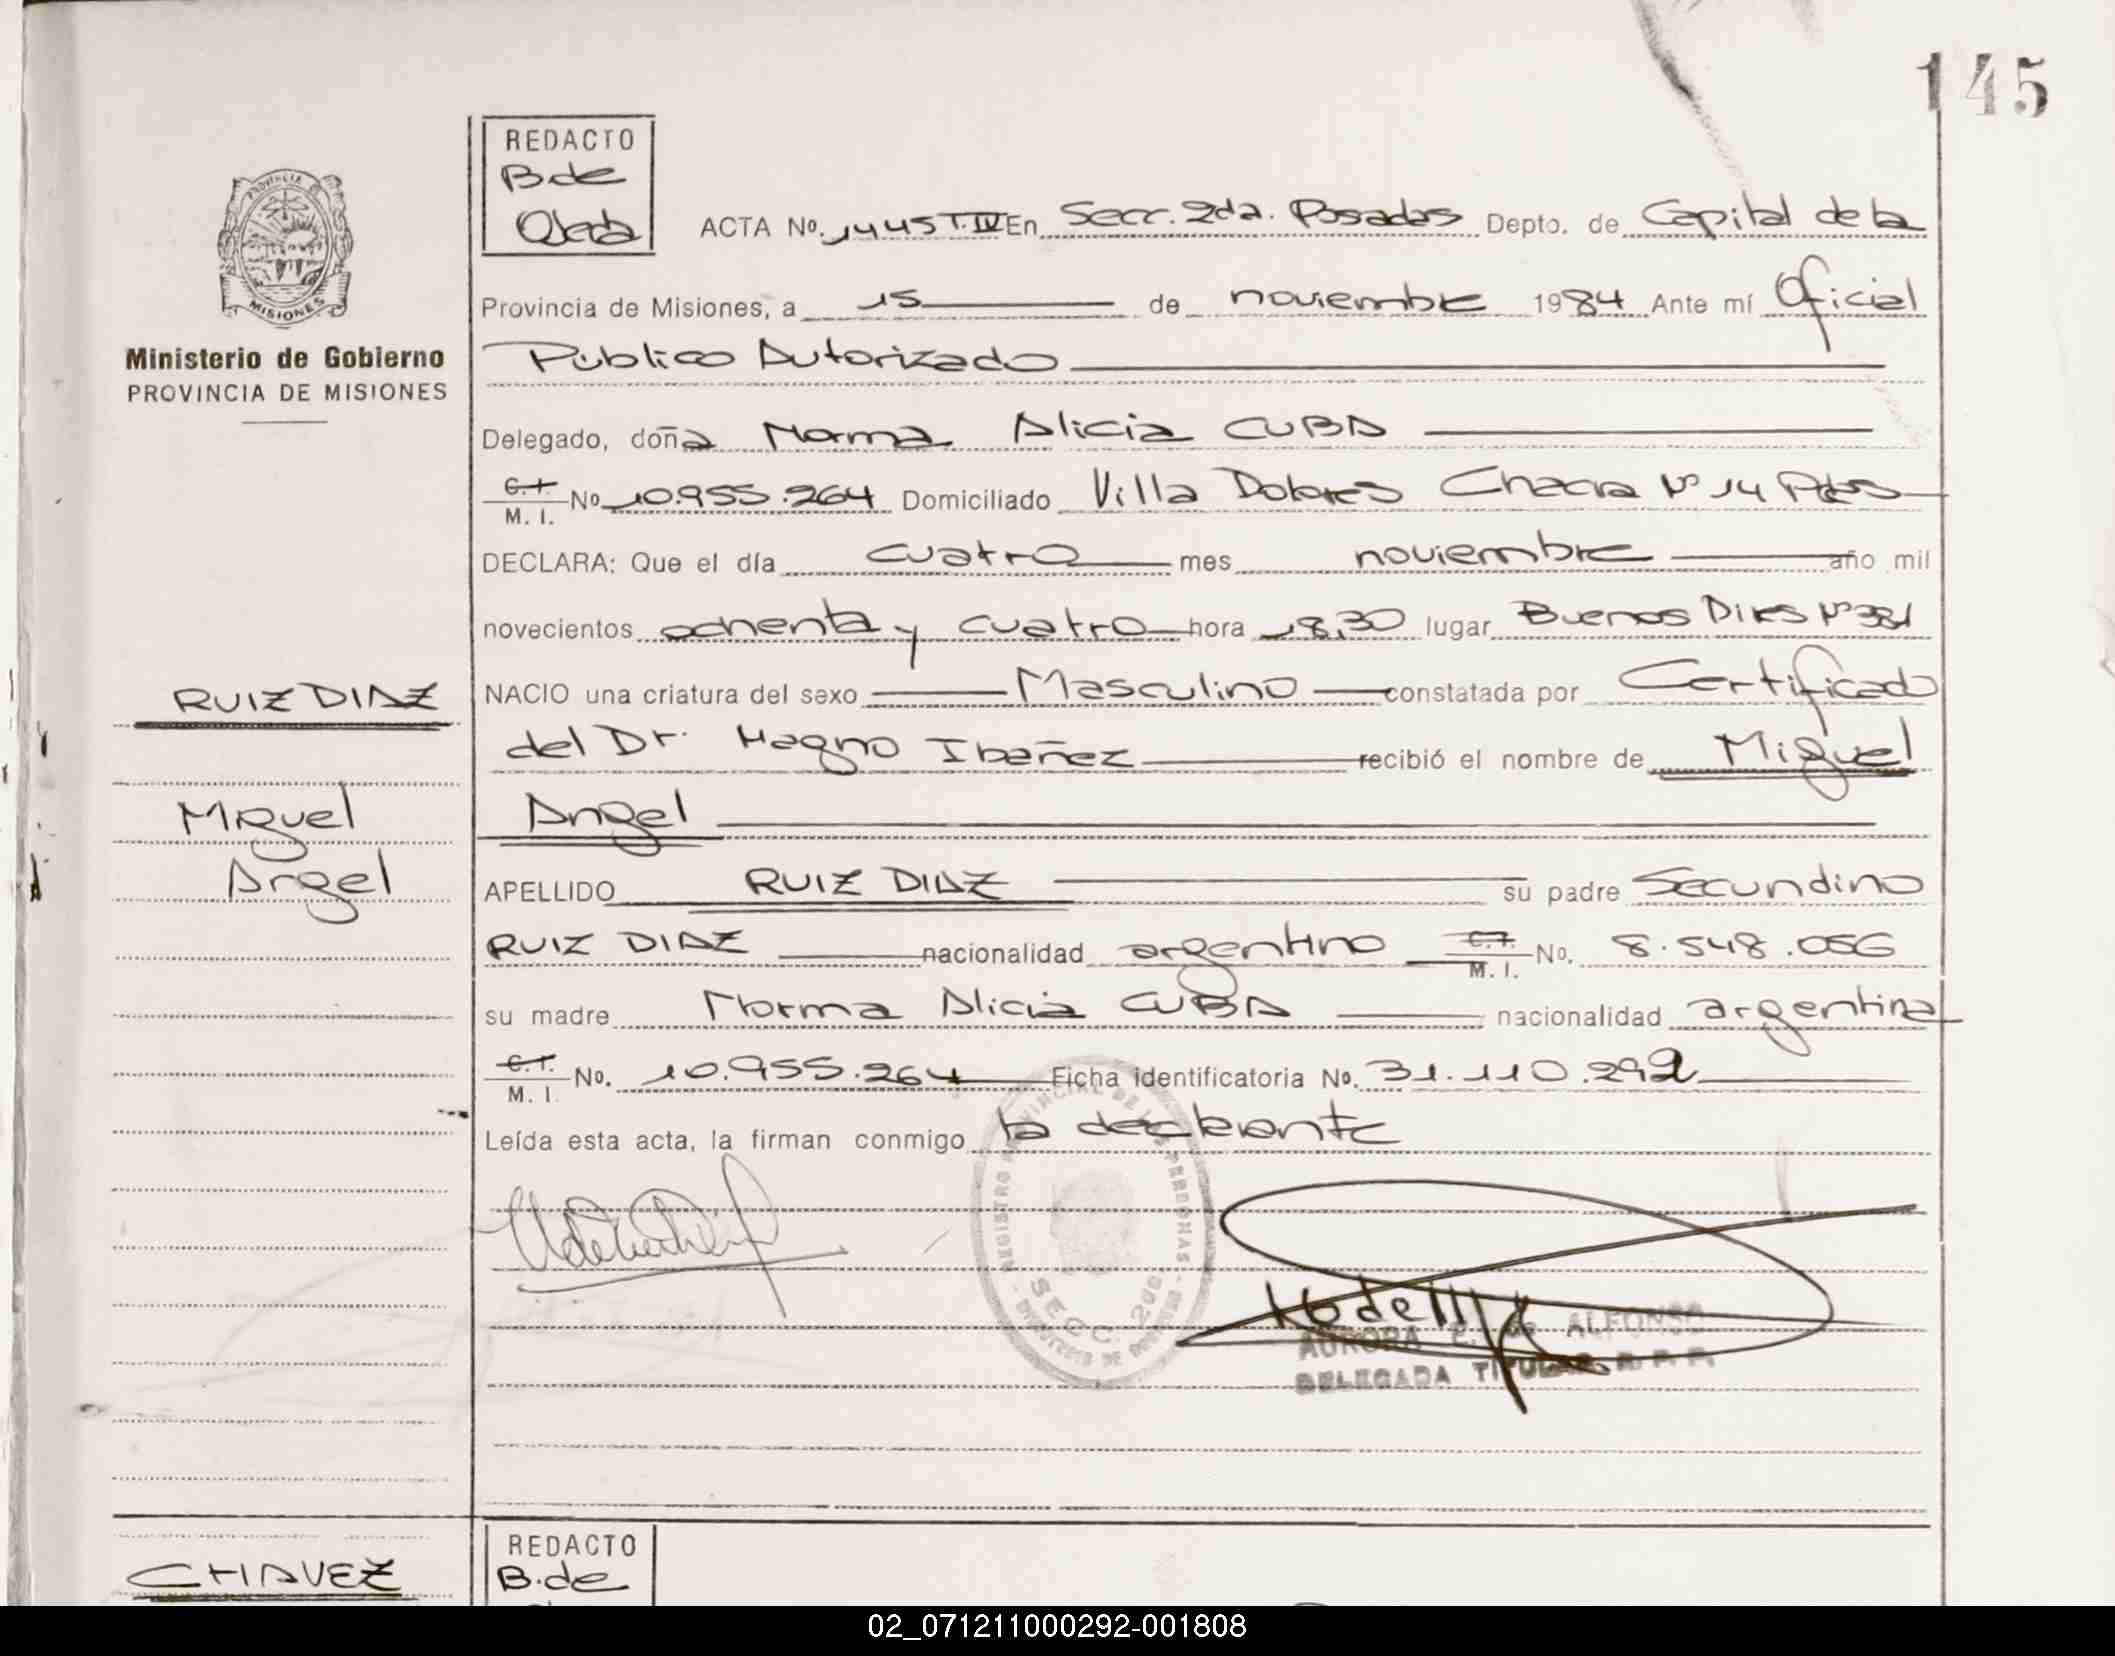 145
REDACTO
B. de
Ojeda
PROVINCIA DE
MISIONES
Ministerio de Gobierno
PROVINCIA DE MISIONES
ACTA No. 1445 T. IV En Secc. 2da. Posadas Depto. de Capital de la
Provincia de Misiones, a 15 de noviembre 1984 Ante mí Oficial
Público Autorizado
Delegado, doña Norma Alicia CUBA
C. I. M. I. No 10.955.264 Domiciliado Villa Dolores Chacra Nº 14 Pdas
DECLARA: Que el día cuatro mes noviembre año mil
novecientos ochenta y cuatro hora 18,30 lugar Buenos Aires Nº 381
RUIZ DIAZ
NACIO una criatura del sexo Masculino constatada por Certificado
del Dr. Magno Ibañez recibió el nombre de Miguel
Miguel
Angel
Angel
APELLIDO RUIZ DIAZ su padre Secundino
RUIZ DIAZ nacionalidad argentino C. I. M. I. No. 8.548.056
su madre Norma Alicia CUBA nacionalidad argentina
C. I. M. I. No. 10.955.264 Ficha identificatoria No. 31.110.292
Leída esta acta, la firman conmigo la declarante
REGISTRO PROVINCIAL DE LAS PERSONAS
SECC. 2da
AURORA E. de ALFONSO
DELEGADA TITULAR R. P. P.
CHAVEZ
REDACTO
B. de
02_071211000292-001808